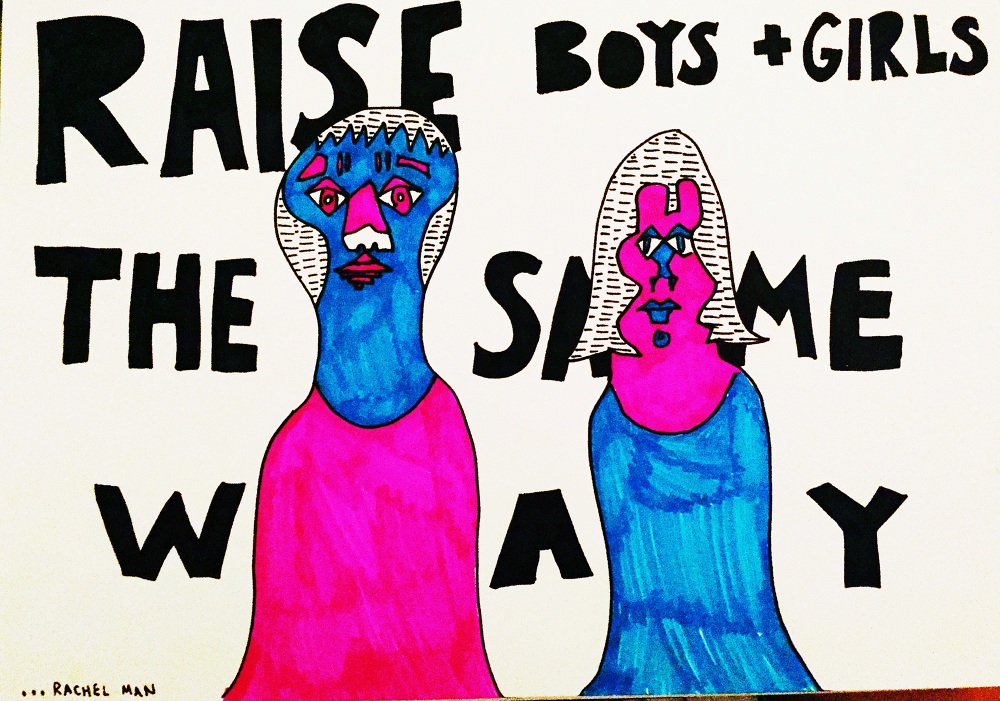 RAISE BOYS + GIRLS
THE SAME
WAY
...RACHEL MAN